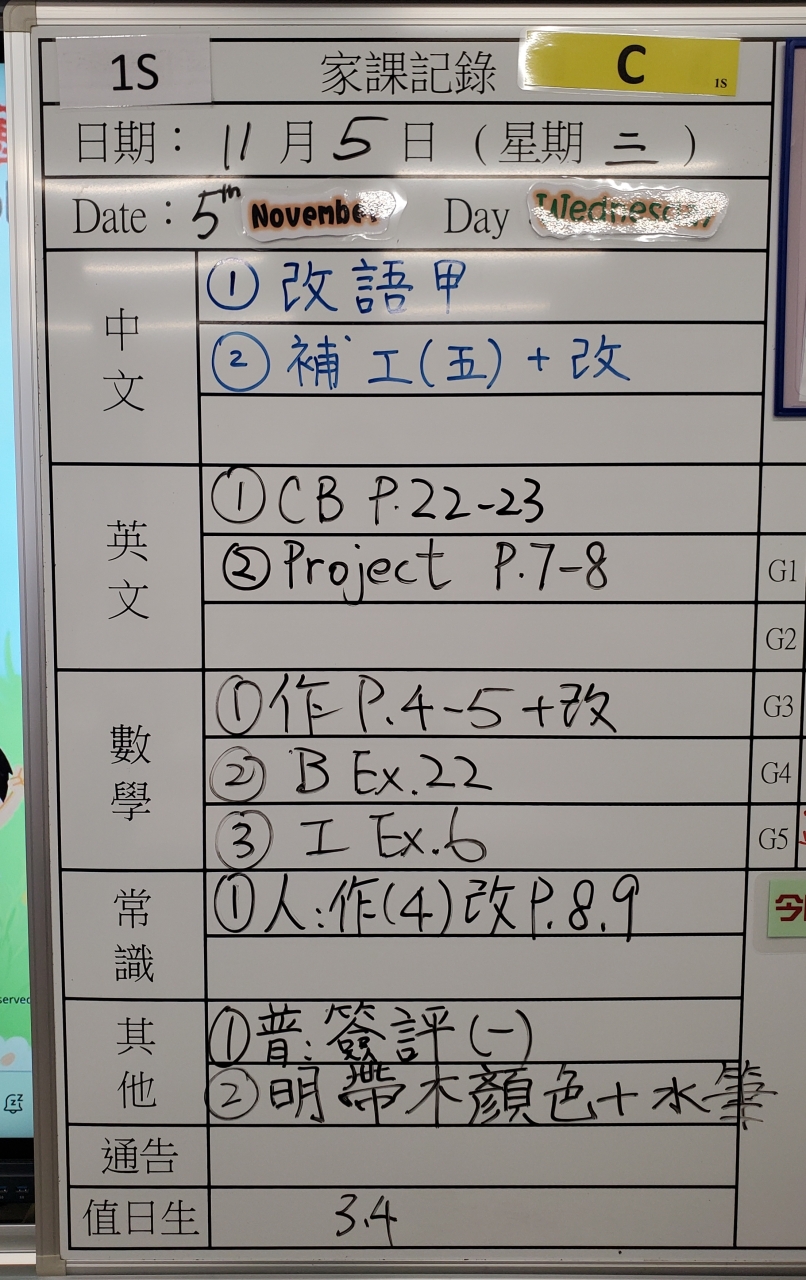 1S 家課記錄 C 1S
日期：11月5日（星期三）
Date：5th November Day Wednesday
中文
① 改語甲
② 補工(五)+改
英文
① CB P.22-23
② Project P.7-8
G1
G2
數學
① 作 P.4-5+改
G3
② B Ex.22
G4
③ 工 Ex.6
G5
常識
① 人:作(4)改P.8.9
今
其他
① 普:簽評(一)
② 明帶木顏色+水筆
通告
值日生 3.4
served